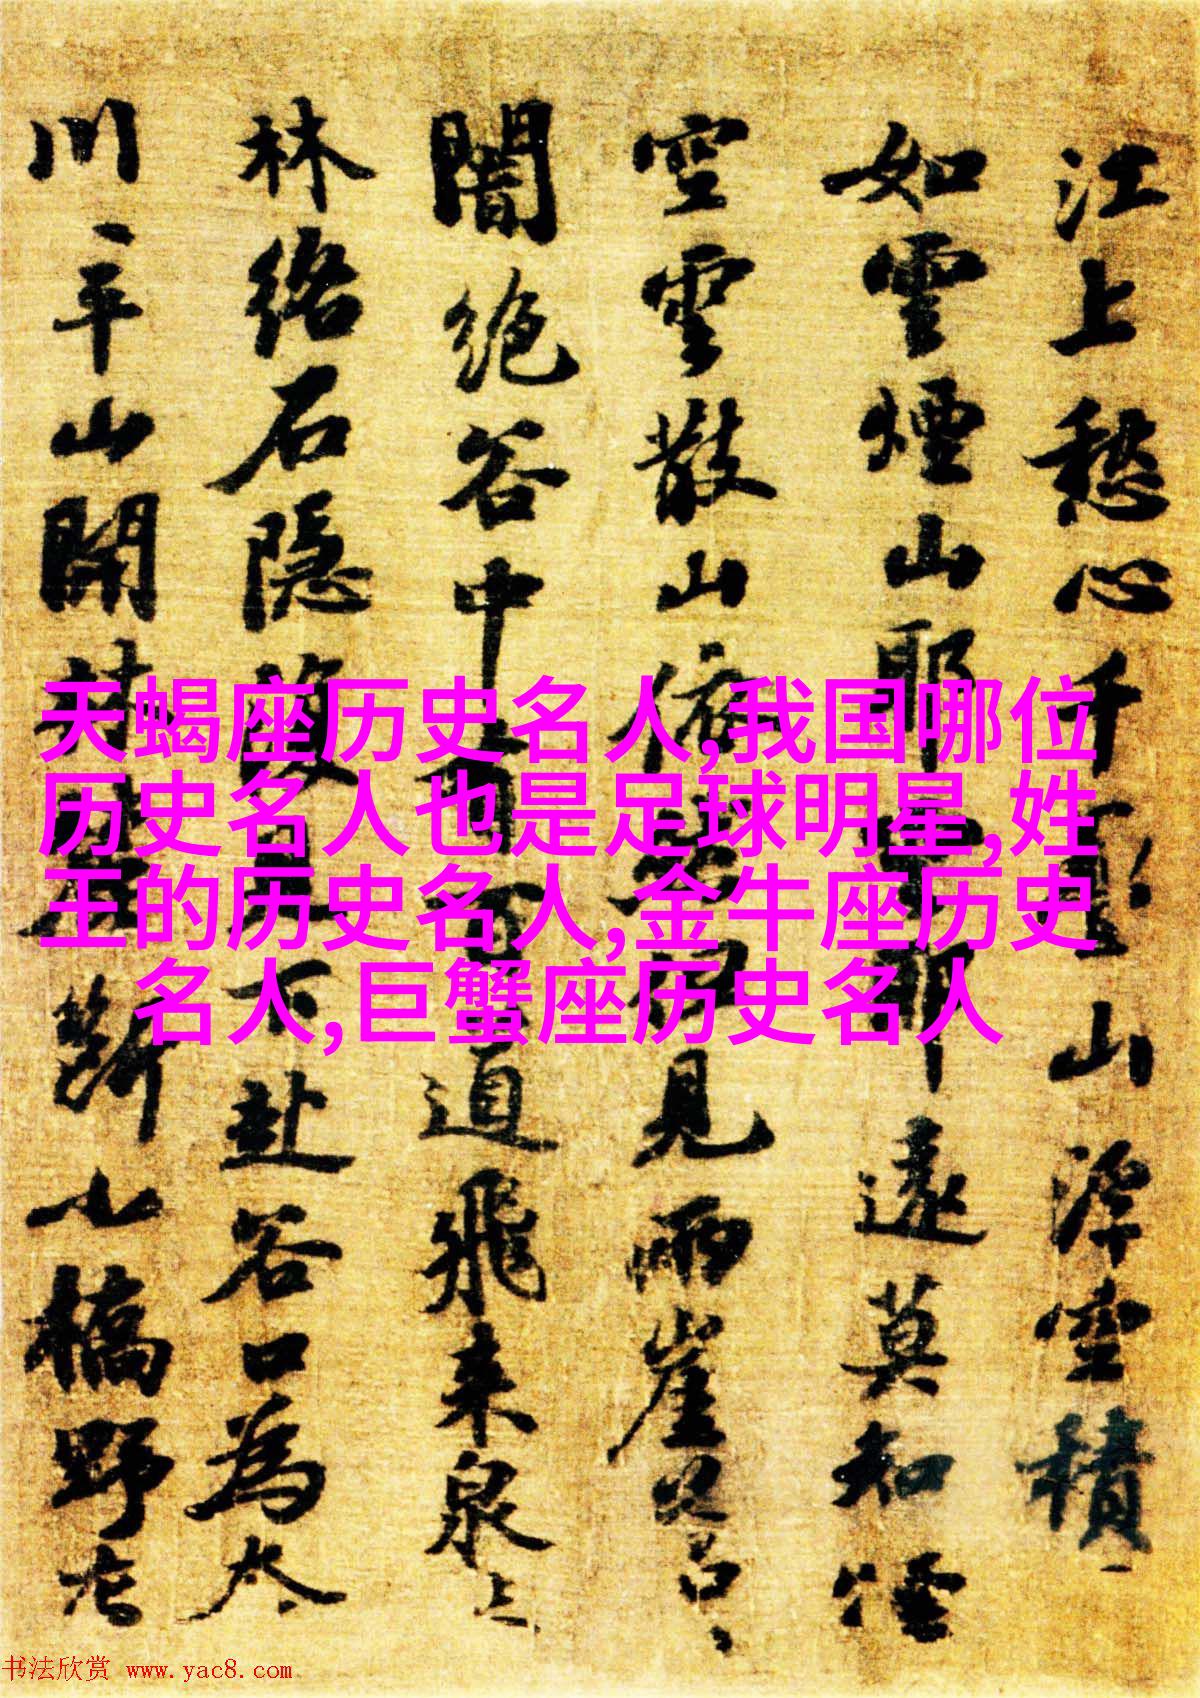 江上愁心千疊山浮空積
如雲煙山耶雲耶遠莫知煙
空雲散山依然但見兩崖蒼蒼
闇絕谷中有百道飛來泉
林絡石隱復見下赴谷口為
川平山開林麓斷小橋野店
天蝎座历史名人,我国哪位
历史名人也是足球明星,姓
王的历史名人,金牛座历史
名人,巨蟹座历史名人
书法欣赏 www.yac8.com